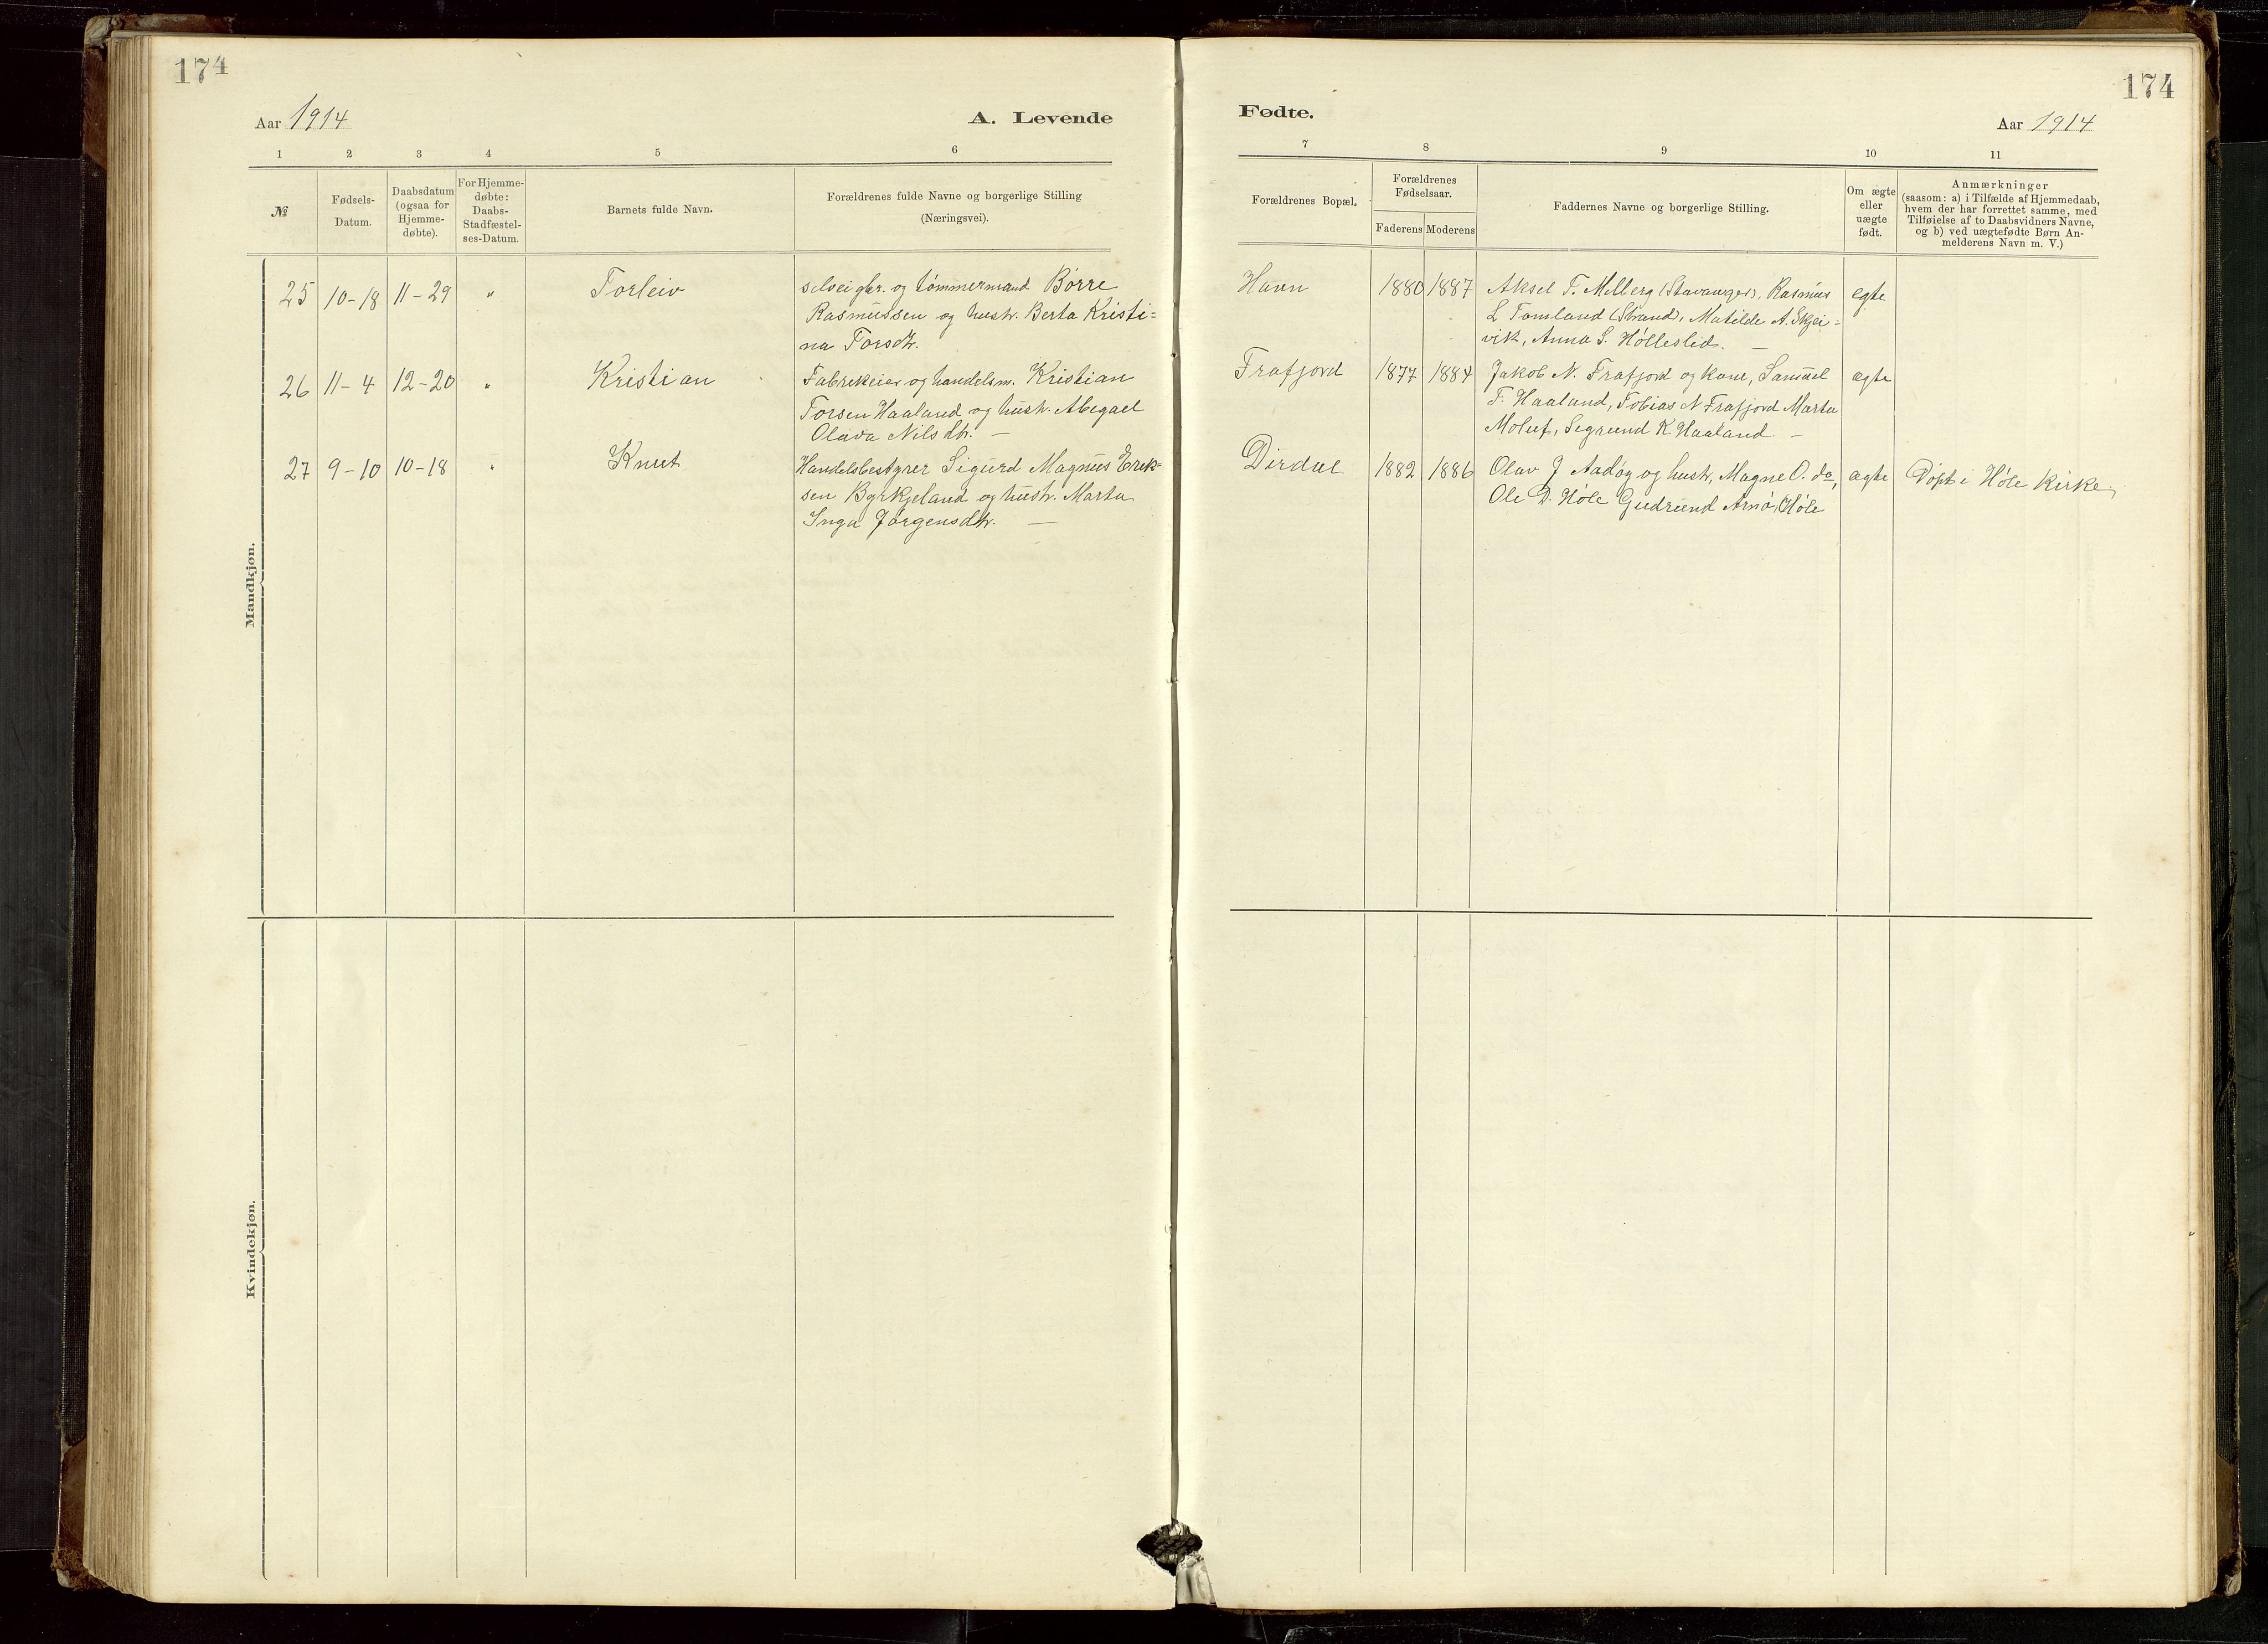 174
174
Aar 1914
A. Levende
Fødte.
Aar 1914
1 2 3 4 5 6
7 8 9 10 11
№
Fødsels-
Datum.
Daabsdatum
(ogsaa for
Hjemme-
døbte).
For Hjemme-
døbte:
Daabs-
Stadfæstel-
ses-Datum.
Barnets fulde Navn.
Forældrenes fulde Navne og borgerlige Stilling
(Næringsvei).
Forældrenes Bopæl.
Forældrenes
Fødselsaar.
Faderens Moderens
Faddernes Navne og borgerlige Stilling.
Om ægte
eller
uægte
født.
Anmærkninger
(saasom: a) i Tilfælde af Hjemmedaab,
hvem der har forrettet samme, med
Tilføielse af to Daabsvidners Navne,
og b) ved uægtefødte Børn An-
melderens Navn m. V.)
Mandkjøn.
25 10-18 11-29 " Torleiv
selveigbr. og tømmermand Børre
Rasmussen og hustr. Berta Kristi=
na Torsdtr.
Havn 1880 1887
Aksel T. Melberg (Stavanger), Rasmus
L Tomland (Strand), Matilde A. Skjei=
vik, Anna S. Hølleslid. —
egte
26 11-4 12-20 " Kristian
Fabrikeier og handelsm. Kristian
Torsen Haaland og hustr. Abegael
Olava Nilsdtr. —
Frafjord 1877 1884
Jakob N. Frafjord og kone, Samuel
T. Haaland, Tobias N Frafjord Marta
Moluf, Segrund K. Haaland —
ægte
27 9-10 10-18 " Knut
Handelsbestyrer Sigurd Magnus Erik=
sen Byrkjeland og hustr. Marta
Inga Jørgensdtr. —
Dirdal 1882 1886
Olav J Aadøy og hustr, Magne O. do,
Ole D. Høle Gudrund Arnø, Høle
ægte
Døpt i Høle Kirke.
Kvindekjøn.